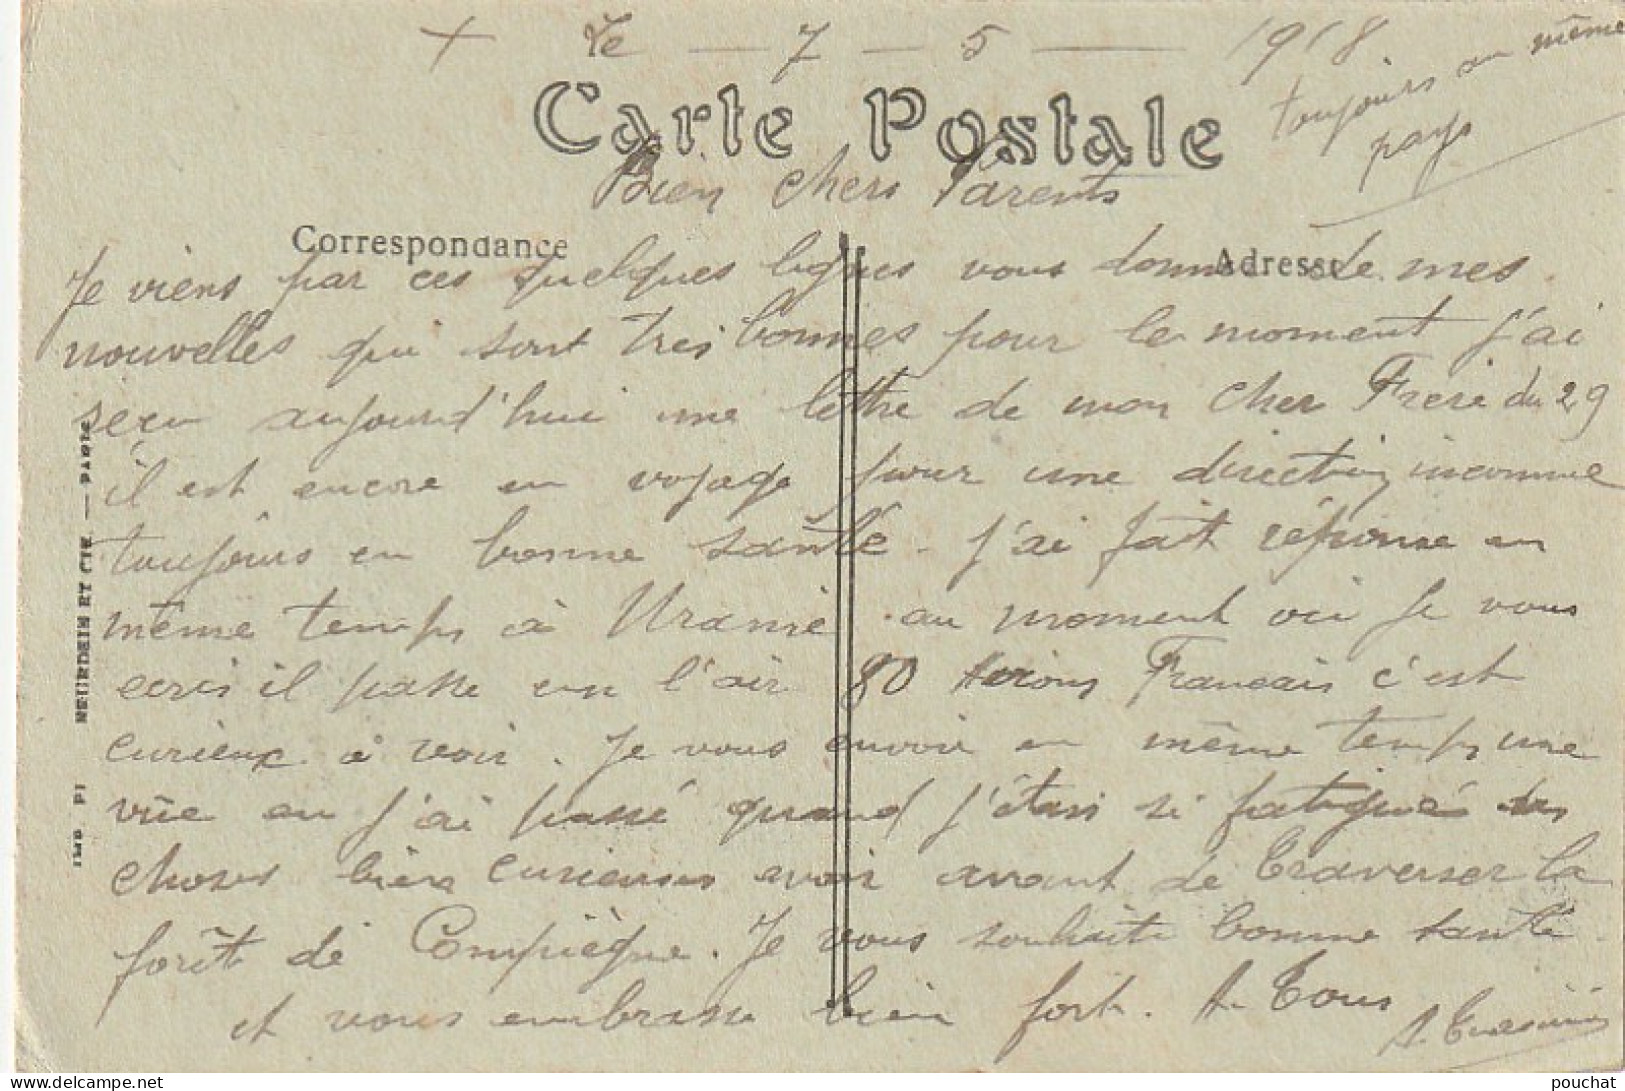 + Le — 7 — 5 — 1918
toujours au même
pays
Carte Postale
Bien chers Parents
Correspondance
Adresse
Je viens par ces quelques lignes vous donner de mes
nouvelles qui sont tres bonnes pour le moment j'ai
recu aujourd'hui une lettre de mon cher Frere du 29
il est encore en voyage pour une direction inconnue
toujours en bonne santé. J'ai fait réponse en
même temps à Uranie. au moment ou Je vous
ecris il passe en l'air 80 Avions Francais c'est
curieux a voir. Je vous envoie en même temps une
vue ou j'ai passé quand j'étais si fatigué des
choses bien curieuses a voir avant de traverser la
forêt de Compiègne. Je vous souhaite bonne santé
et vous embrasse bien fort. A Tous
IMP. NEURDEIN ET CIE. — PARIS
pouchat